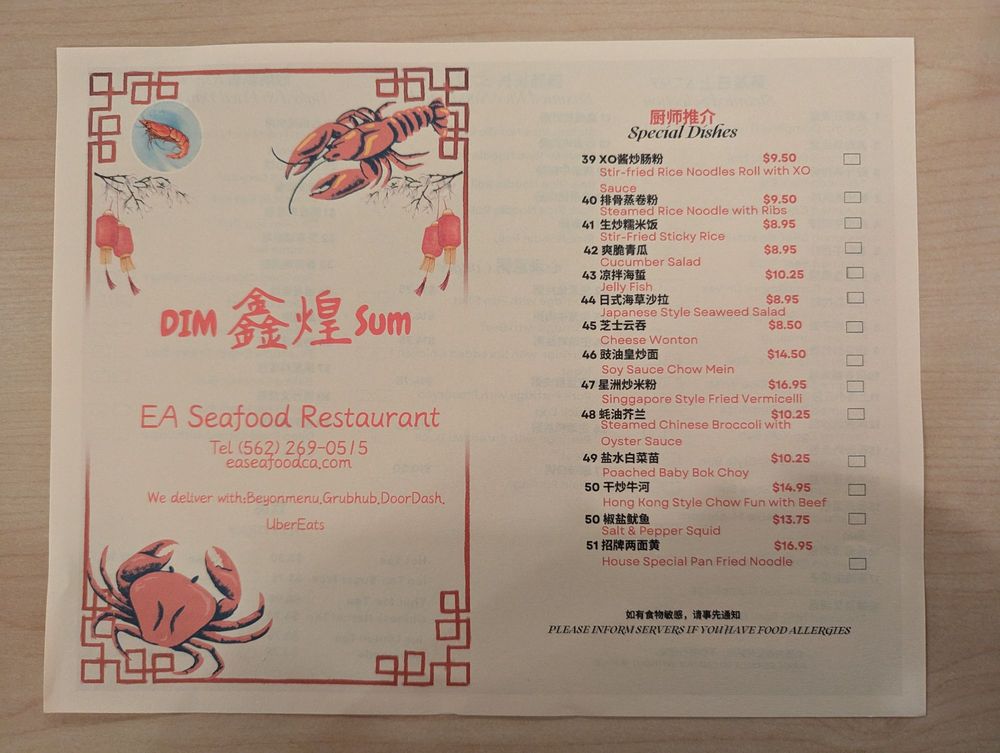 DIM 鑫煌 Sum
EA Seafood Restaurant
Tel (562) 269-0515
easeafoodca.com
We deliver with:Beyonmenu,Grubhub,DoorDash,
UberEats
厨师推介
Special Dishes
39 XO酱炒肠粉 $9.50
Stir-fried Rice Noodles Roll with XO
Sauce
40 排骨蒸卷粉 $9.50
Steamed Rice Noodle with Ribs
41 生炒糯米饭 $8.95
Stir-Fried Sticky Rice
42 爽脆青瓜 $8.95
Cucumber Salad
43 凉拌海蜇 $10.25
Jelly Fish
44 日式海草沙拉 $8.95
Japanese Style Seaweed Salad
45 芝士云吞 $8.50
Cheese Wonton
46 豉油皇炒面 $14.50
Soy Sauce Chow Mein
47 星洲炒米粉 $16.95
Singgapore Style Fried Vermicelli
48 蚝油芥兰 $10.25
Steamed Chinese Broccoli with
Oyster Sauce
49 盐水白菜苗 $10.25
Poached Baby Bok Choy
50 干炒牛河 $14.95
Hong Kong Style Chow Fun with Beef
50 椒盐鱿鱼 $13.75
Salt & Pepper Squid
51 招牌两面黄 $16.95
House Special Pan Fried Noodle
如有食物敏感，请事先通知
PLEASE INFORM SERVERS IF YOU HAVE FOOD ALLERGIES